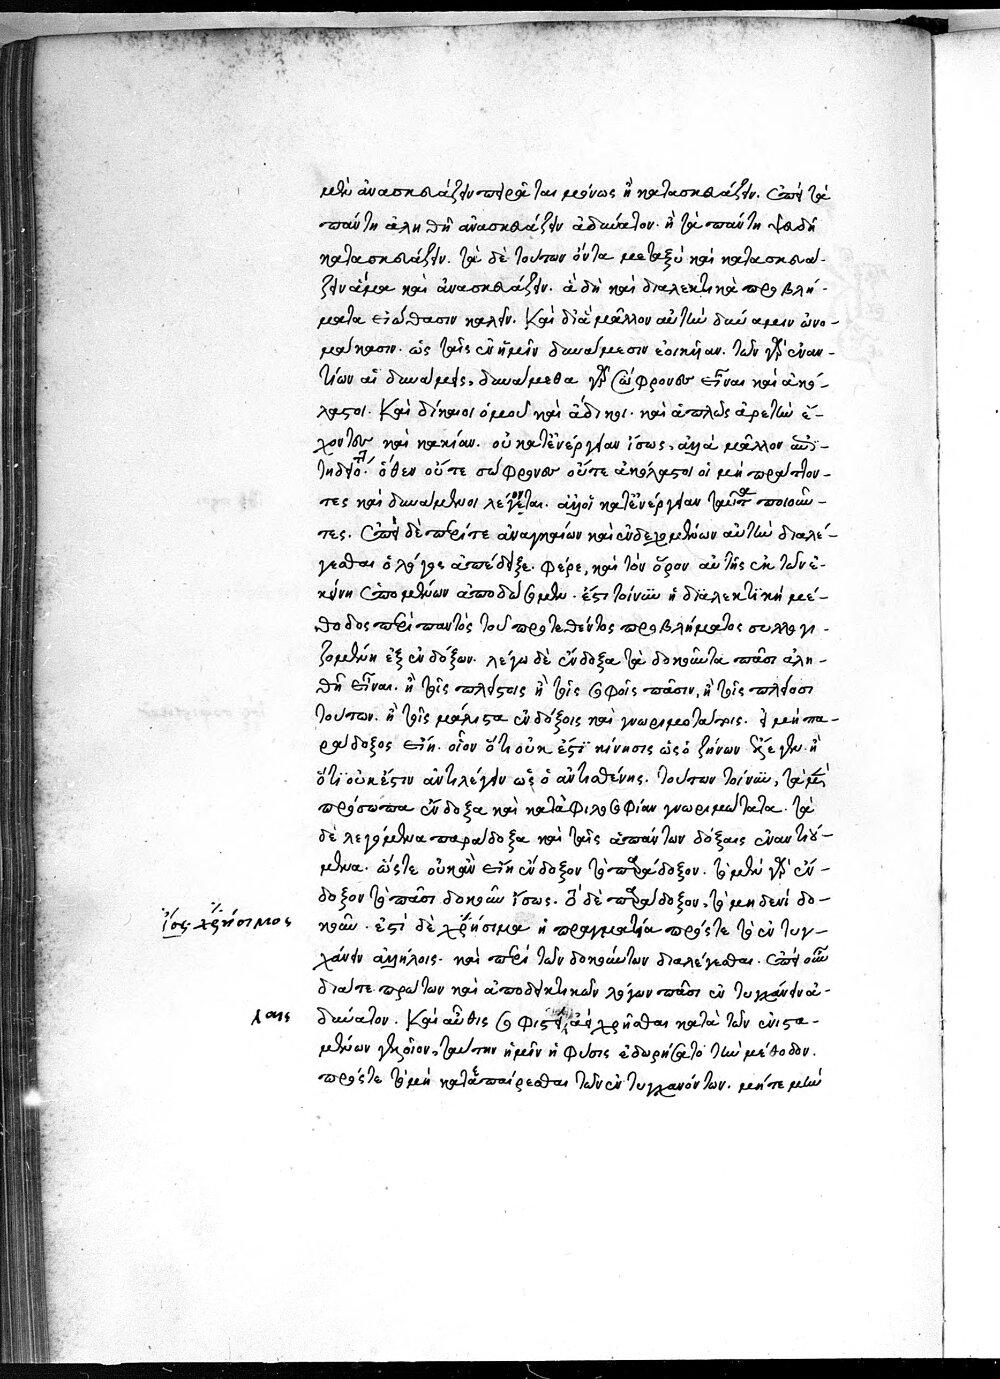 μὲν ἀνασκευάζειν πειρᾶται μόνως ἢ κατασκευάζειν. ἐπεὶ τὰ
πάντη ἀληθῆ ἀνασκευάζειν ἀδύνατον. ἢ τὰ πάντη ψευδῆ
κατασκευάζειν. τὰ δὲ τούτων ὄντα μεταξὺ καὶ κατασκευά-
ζειν ἅμα καὶ ἀνασκευάζειν. ἃ δὴ καὶ διαλεκτικὰ προβλή-
ματα εἰώθασιν καλεῖν. Καὶ διὰ μᾶλλον αὐτὴν δύναμιν ὠνο-
μάκασιν. ὡς ταῖς ἐν ἡμῖν δυνάμεσιν ἐοικυῖαν. τῶν γὰρ ἐναν-
τίων αἱ δυνάμεις, δυνάμεθα γὰρ σώφρονες εἶναι καὶ ἀκό-
λαστοι. Καὶ δίκαιοι ὁμοῦ καὶ ἄδικοι. καὶ ἁπλῶς ἀρετὴν ἔ-
χοντες καὶ κακίαν. οὐ κατενέργειαν ἴσως, ἀλλὰ μᾶλλον
ὅθεν οὔτε σώφρονες οὔτε ἀκόλαστοι οἱ μὴ πράττον-
τες καὶ δυνάμενοι λέγονται. ἀλλ' οἱ κατενέργειαν ταῦτα ποιοῦν-
τες. ἐπεὶ δὲ περί τε ἀναγκαίων καὶ ἐνδεχομένων αὐτὴν διαλέ-
γεσθαι ὁ λόγος ἀπέδειξε. φέρε, καὶ τὸν ὅρον αὐτῆς ἐκ τῶν ἐ-
κείνῃ ἑπομένων ἀποδώσωμεν. ἔστι τοίνυν ἡ διαλεκτικὴ μέ-
θοδος περὶ παντὸς τοῦ προτεθέντος προβλήματος συλλογι-
ζομένη ἐξ ἐνδόξων. λέγω δὲ ἔνδοξα τὰ δοκοῦντα πᾶσι ἀλη-
θῆ εἶναι. ἢ τοῖς πλείστοις ἢ τοῖς σοφοῖς πᾶσιν, ἢ τοῖς πλείοσι
τούτων. ἢ τοῖς μάλιστα ἐνδόξοις καὶ γνωριμοτάτοις. εἰ μὴ πα-
ράδοξος εἴη. οἷον ὅτι οὐκ ἔστι κίνησις ὡς ὁ ζήνων ἔλεγεν. ἢ
ὅτι οὐκ ἔστιν ἀντιλέγειν ὡς ὁ ἀντισθένης. τούτων τοίνυν, τὰ μὲν
πρόσωπα ἔνδοξα καὶ κατὰ φιλοσοφίαν γνωριμώτατα. τὰ
δὲ λεγόμενα παράδοξα καὶ ταῖς ἁπάντων δόξαις ἐναντιού-
μενα. ὥστε οὐκ ἂν εἴη ἔνδοξον τὸ παράδοξον. τὸ μὲν γὰρ ἔν-
δοξον τὸ πᾶσι δοκοῦν ἴσως. τὸ δὲ παράδοξον, τὸ μηδενὶ δο-
κοῦν. ἐστὶ δὲ χρήσιμα ἡ πραγματεία πρός τε τὸ ἐντυγ-
χάνειν ἀλλήλοις. καὶ περὶ τῶν δοκούντων διαλέγεσθαι. ἐπεὶ οὖν
διά τε πρώτων καὶ ἀποδεικτικῶν λόγων πᾶσι ἐντυγχάνειν ἀ-
δύνατον. Καὶ αὖθις χρῆσθαι κατὰ τῶν ἐνιστα-
μένων γελοῖον, ταύτην ἡμῖν ἡ φύσις ἐδωρήσατο τὴν μέθοδον.
πρός τε τὸ μὴ κατεπαίρεσθαι τῶν ἐντυγχανόντων. μήτε μὴν
ἴσως χρήσιμος
λαις